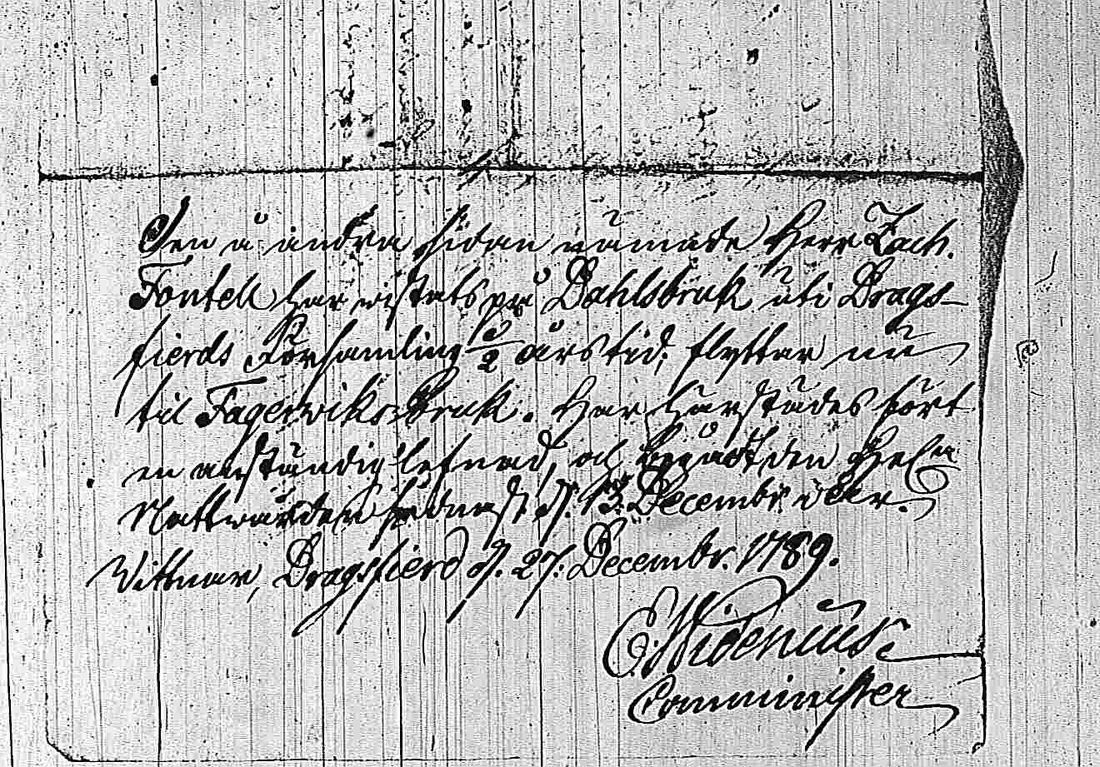 Den å andra sidan nämnde Herr Zach.
Fontell har vistats på Dahlsbruk uti Drags-
fierds Församling 3/2 årstid; flyttar nu
til Fagerwiks Bruk. Har härstädes fört
en anständig lefnad, och begådt den Hel.
Nattwarden sednast d. 13 Decembr.
Vittnar, Dragsfierd d. 27. Decembr. 1789.
E. Widenius
Comminister